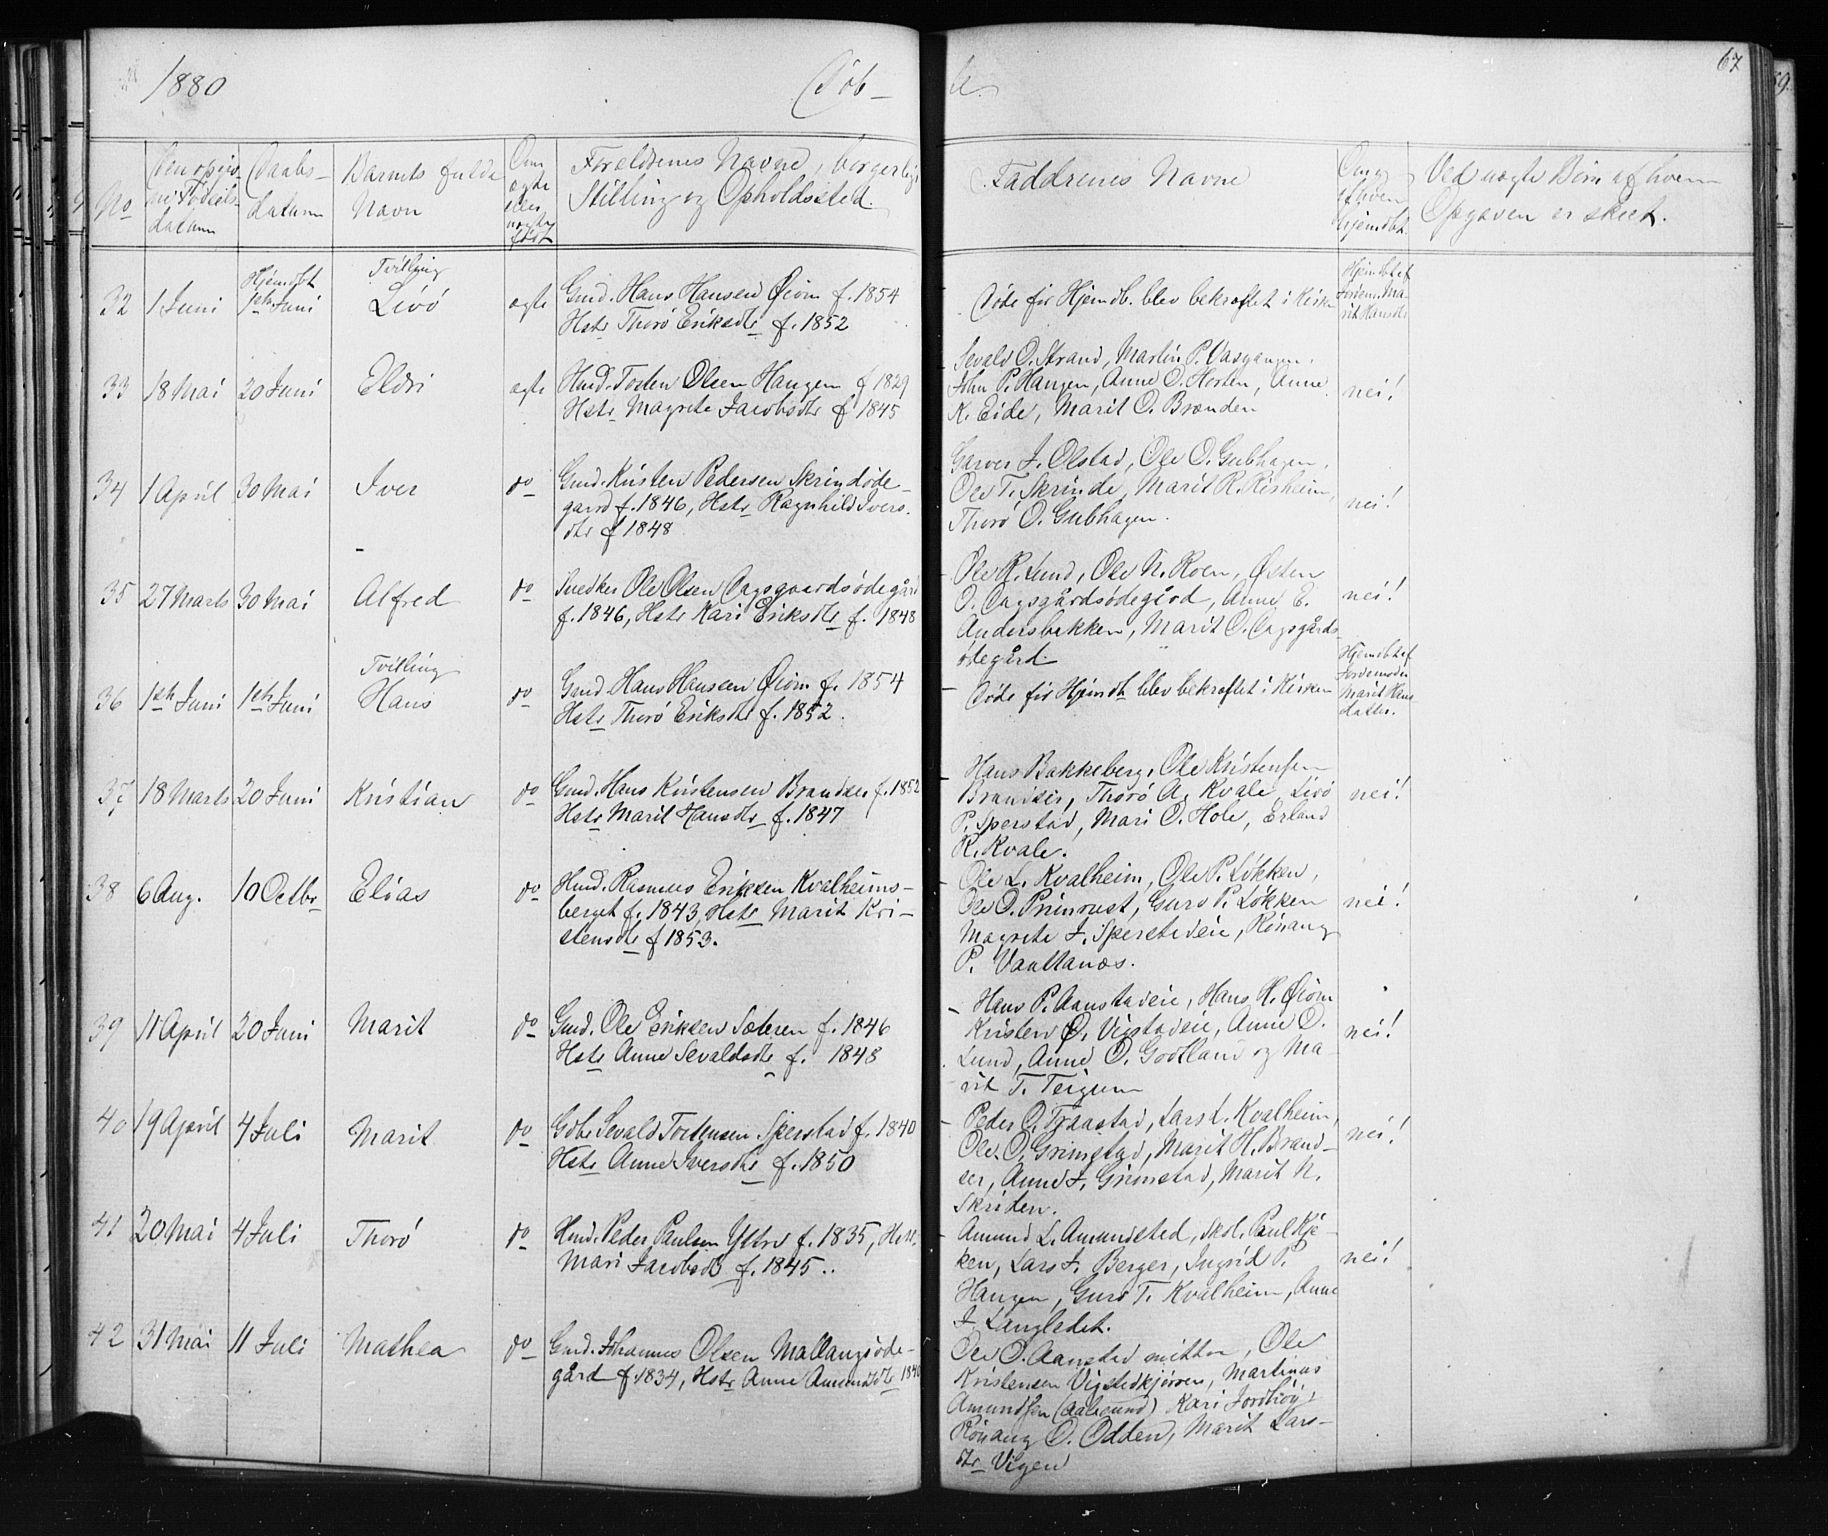 1880
Døb-
e.
67
No
Den opgivne Fødsels-datum
Daabs-datum
Barnets fulde Navn
Om ægte eller uægte født
Forældrenes Navne, borgerlige Stilling og Opholdssted.
Faddrenes Navne
Om og af hvem hjemdbt.
Ved uægte Børn af hvem Opgaven er skeet.
32
1 Juni
Hjemdbt
1ste Juni
Tvilling
Livö
ægte
Gmd. Hans Hansen Öiom f. 1854
Hstr Thorö Eriksdtr f. 1852
Dödeför Hjemdb. blev bekræftet i Kirken
Hjemdbt af
Jordem. Ma-
rit Hansdtr
33
18 Mai
20 Juni
Eldri
ægte
Hmd. Tosten Olsen Haugen f 1829
Hstr Magrete Jacobsdtr f 1845
Sevald O. Strand, Martin P. Vaagaagen,
John P. Haugen, Anne O. Horten, Anne
K. Eide, Marit O. Brænden
nei!
34
1 April
30 Mai
Iver
do
Gmd. Kristen Pedersen Skrindöde-
gaard f. 1846, Hstr Ragnhild Ivers-
dtr f 1848
J. Olstad, Ole O. Gubhagen,
Ole T. Skrinde, Marit R. Risheim,
Thorö O. Gubhagen.
nei!
35
27 Marts
30 Mai
Alfred
do
Snedker Ole Olsen Dagsgaardsödegård
f. 1846, Hstr Kari Eriksdtr f. 1848
Ole R. Lund, Ole N. Roen, Östen
O. Dagsgårdsödegård, Anne E.
Andersbakken, Marit O. Dagsgårds-
ödegård.
nei!
36
1ste Juni
1ste Juni
Tvilling
Hans
do
Gmd. Hans Hansen Öiom f. 1854
Hstr Thorö Eriksdtr f. 1852.
Döde för Hjemdt. blev bekræftet i Kirken
Hjemdbt af
Jordemoder
Marit Hans
datter.
37
18 Marts
20 Juni
Kristian
do
Gmd. Hans Kristensen Brandser f. 1852
Hstr Marit Hansdtr f. 1847
Hans Bakkeberg, Ole Kristensen
Brandser, Thorö A. Kvale, Livö
P. Sperstad, Mari O. Hole, Erland
K. Kvale.
nei!
38
6 Aug.
10 Octbr
Elias
do
Hmd. Rasmus Eriksen Kvalheims-
berget f. 1843, Hstr Marit Kri-
stensdtr f 1853.
Ole L. Kvalheim, Ole P. Lökken,
Ole O. Guro P. Lökken
Magrete J. Sperstadeie, Rönaug
P. Vaultanæs.
nei!
39
11 April
20 Juni
Marit
do
Gmd. Ole Eriksen Sæteren f. 1846
Hstr Anne Sevaldsdtr f. 1848
Hans P. Aanstadeie, Hans H. Öiom
Kristen O. Vigstadeie, Anne O.
Lund, Anne O. Godtland og Ma
rit T. Teigum
nei!
40
19 April
4 Juli
Marit
do
Gbr. Sevald Torgersen Sperstad f. 1840
Hstr Anne Iversdtr f. 1850
Peder O. Fraastad, Lars L. Kvalheim,
Ole O. Grimstad, Marit H. Brand-
ser, Anne J. Grimstad, Marit N.
Skriden.
nei!
41
20 Mai
4 Juli
Thorö
do
Hmd. Peder Paulsen Yttre f. 1835, H.
Mari Jacobsdtr f. 1845.
Amund L. Amundsted, Skol. Paul Kjö-
ken, Lars J. Berger, Ingrid P.
Haugen, Guro T. Kvalheim, Anne
J. Langledet.
nei!
42
31 Mai
11 Juli
Mathea
do
Gmd. Johannes Olsen Mallangsöde-
gård f. 1834, Hstr Anne Amundsdtr 1840
Ole O. Aanstad mitten, Ole
Kristensen Vigstedkjörren, Martinus
Amundsen (Aalesund) Kari Jordhöy,
Rönaug O. Odden, Marit Lars-
dtr Vigen